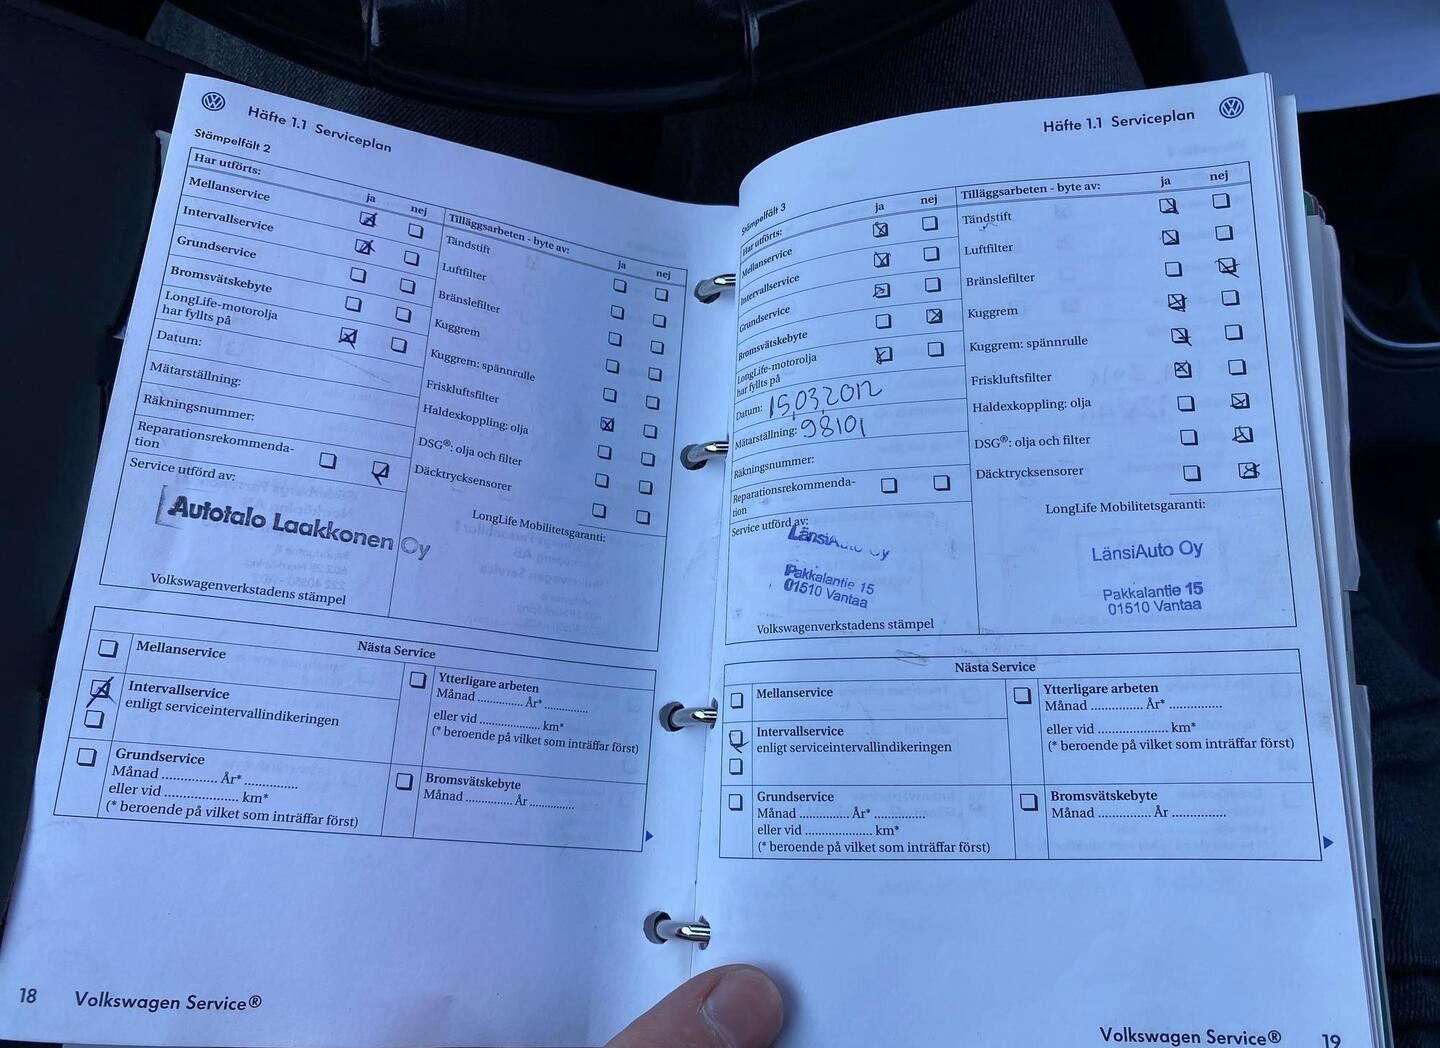 Häfte 1.1 Serviceplan
Stämpelfält 2
Har utförts:
ja nej
Mellanservice
Intervallservice
Grundservice
Bromsvätskebyte
LongLife-motorolja
har fyllts på
Datum:
Mätarställning:
Räkningsnummer:
Reparationsrekommenda-
tion
Service utförd av:
Autotalo Laakkonen Oy
Volkswagenverkstadens stämpel
Tilläggsarbeten - byte av:
ja nej
Tändstift
Luftfilter
Bränslefilter
Kuggrem
Kuggrem: spännrulle
Friskluftsfilter
Haldexkoppling: olja
DSG®: olja och filter
Däcktrycksensorer
LongLife Mobilitetsgaranti:
Nästa Service
Mellanservice
Intervallservice
enligt serviceintervallindikeringen
Grundservice
Månad .............. År* ..............
eller vid .................... km*
(* beroende på vilket som inträffar först)
Ytterligare arbeten
Månad .............. År* ..............
eller vid .................... km*
(* beroende på vilket som inträffar först)
Bromsvätskebyte
Månad .............. År ..............
18 Volkswagen Service®
Häfte 1.1 Serviceplan
Stämpelfält 3
Har utförts:
ja nej
Mellanservice
Intervallservice
Grundservice
Bromsvätskebyte
LongLife-motorolja
har fyllts på
Datum: 15.03.2012
Mätarställning: 98101
Räkningsnummer:
Reparationsrekommenda-
tion
Service utförd av:
LänsiAuto Oy
Pakkalantie 15
01510 Vantaa
Volkswagenverkstadens stämpel
Tilläggsarbeten - byte av:
ja nej
Tändstift
Luftfilter
Bränslefilter
Kuggrem
Kuggrem: spännrulle
Friskluftsfilter
Haldexkoppling: olja
DSG®: olja och filter
Däcktrycksensorer
LongLife Mobilitetsgaranti:
LänsiAuto Oy
Pakkalantie 15
01510 Vantaa
Nästa Service
Mellanservice
Intervallservice
enligt serviceintervallindikeringen
Grundservice
Månad .............. År* ..............
eller vid .................... km*
(* beroende på vilket som inträffar först)
Ytterligare arbeten
Månad .............. År* ..............
eller vid .................... km*
(* beroende på vilket som inträffar först)
Bromsvätskebyte
Månad .............. År ..............
Volkswagen Service® 19